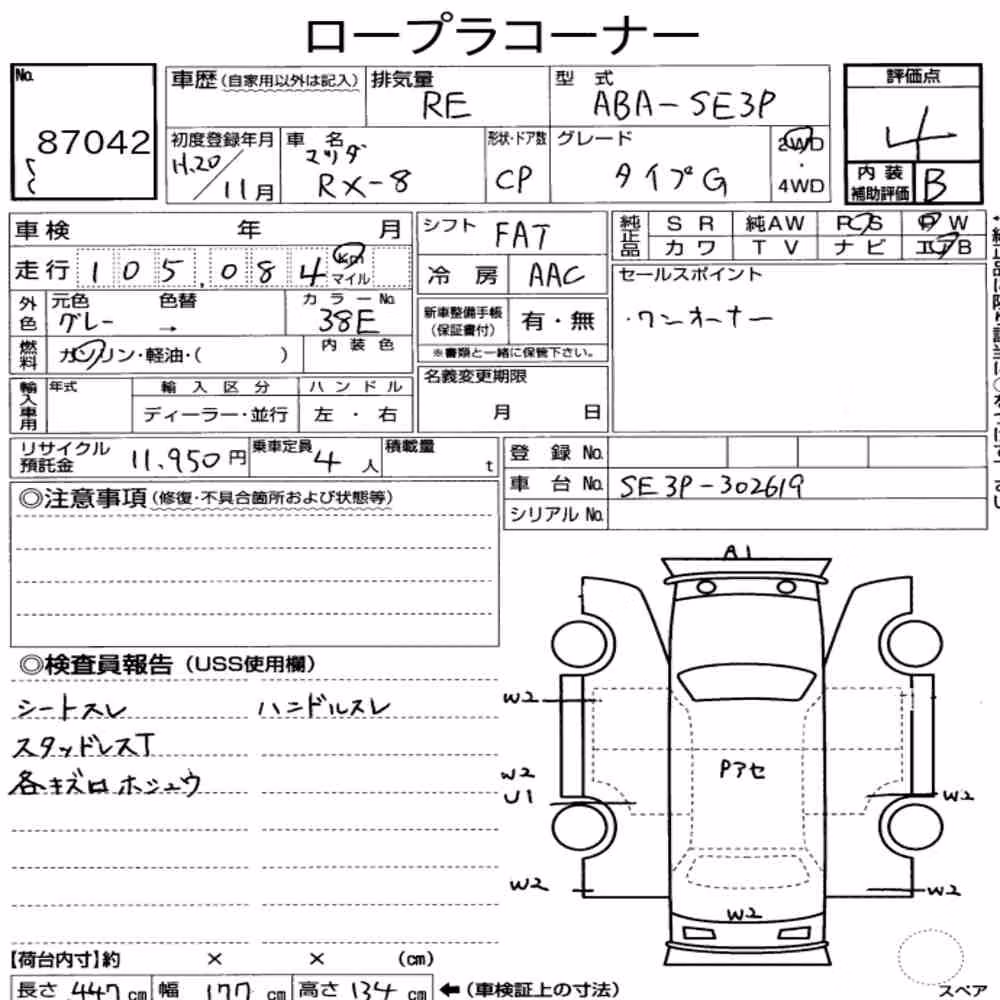 ロープラコーナー
No. 87042
車歴(自家用以外は記入) 排気量 RE 型式 ABA-SE3P
初度登録年月 H.20/11月 車名 マツダ RX-8 形状・ドア数 CP グレード タイプG 2WD・4WD
評価点 4
内装補助評価 B
車検 年 月
走行 105,084 km マイル
外色 元色 グレー 色替 → カラーNo. 38E
燃料 ガソリン・軽油・( ) 内装色
輸入車用 年式 輸入区分 ディーラー・並行 ハンドル 左・右
シフト FAT
冷房 AAC
新車整備手帳(保証書付) 有・無
※書類と一緒に保管下さい。
名義変更期限 月 日
純正品 SR 純AW PS PW
カワ TV ナビ エアB
セールスポイント
・ワンオーナー
リサイクル預託金 11,950円 乗車定員 4人 積載量 t
登録No.
車台No. SE3P-302619
シリアルNo.
◎注意事項(修復・不具合箇所および状態等)
◎検査員報告(USS使用欄)
シートスレ ハンドルスレ
スタッドレスT
各キズロホシュウ
A1
W2
Pアセ
W2
U1
W2
W2
W2
W2
【荷台内寸】約 × × (cm)
長さ 447cm 幅 177cm 高さ 134cm ←(車検証上の寸法)
スペア